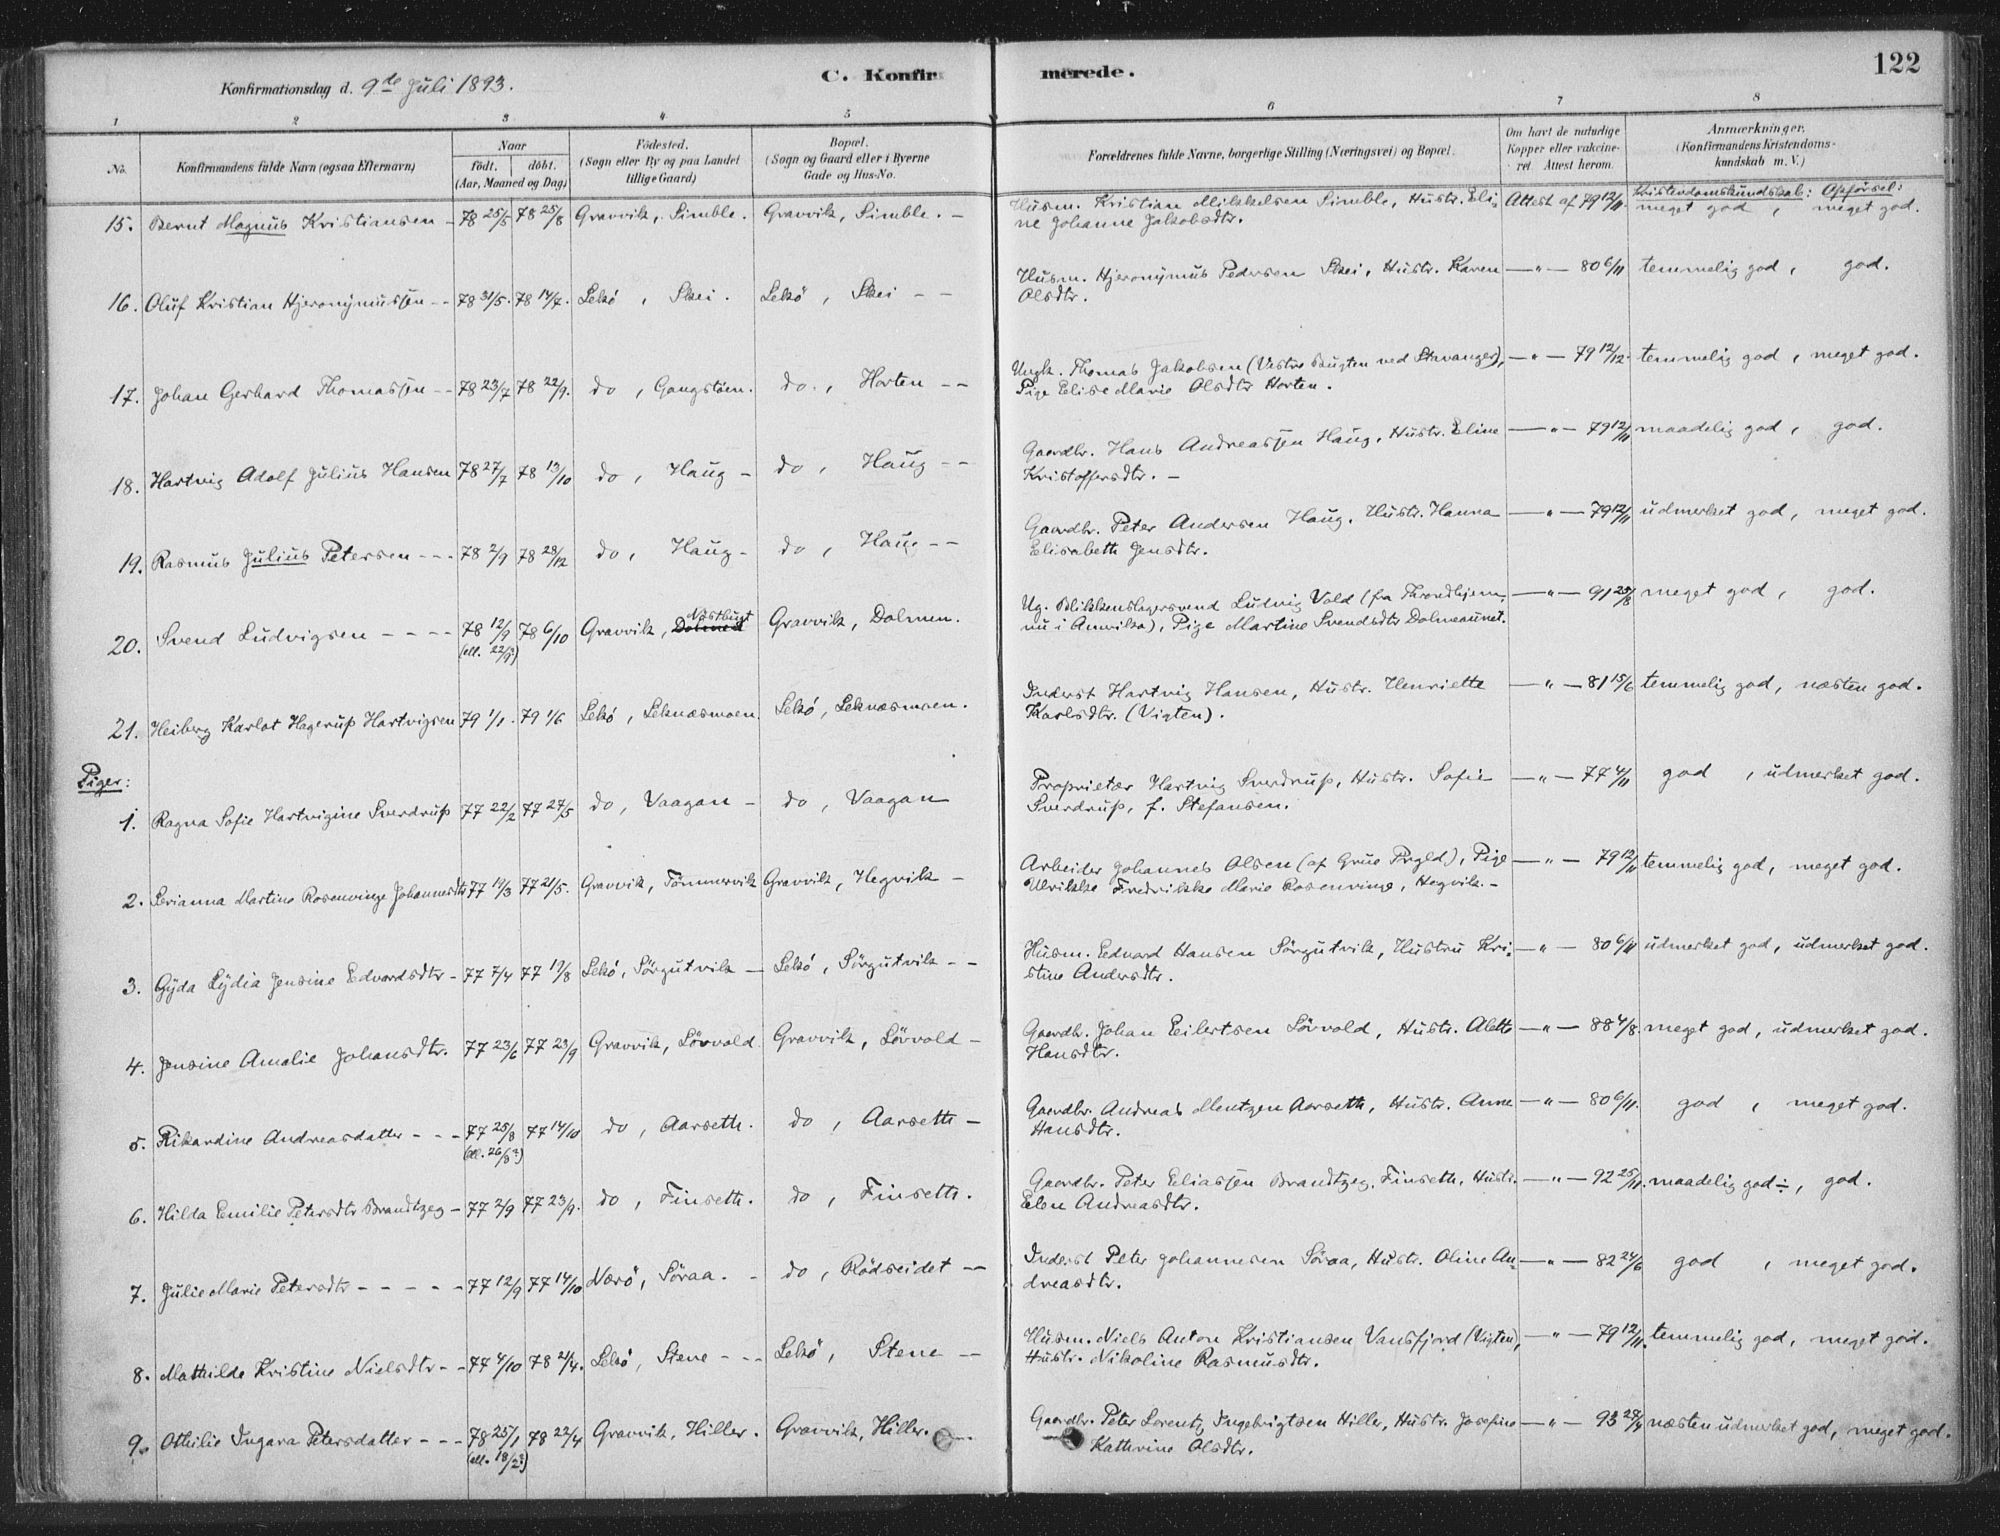 122
Konfirmationsdag d. 9de Juli 1893.
C. Konfirmerede.
1 2 3 4 5 6 7 8
No.
Konfirmandens fulde Navn (ogsaa Efternavn)
Naar
födt. döbt.
(Aar, Maaned og Dag)
Födested.
(Sogn eller By og paa Landet tillige Gaard)
Bopæl.
(Sogn og Gaard eller i Byerne Gade og Hus-No.
Forældrenes fulde Navne, borgerlige Stilling (Næringsvei) og Bopæl.
Om havt de naturlige Kopper eller vakcineret Attest herom.
Anmærkninger.
(Konfirmandens Kristendomskundskab m. V.)
Kristendomskundskab: Opförsel:
15. Bernt Magnus Kristiansen - 78 25/5 78 25/8 Gravvik, Simble. Gravvik, Simble. - Husm. Kristian Mikkelsen Simble, Hustr. Eli- Attest af 79 12/11. meget god, meget god.
ne Johanne Jakobsdtr.
16. Oluf Kristian Hjeronymussen -- 78 31/5. 78 14/7. Lekö, Skei. Lekö, Skei -- Husm. Hjeronymus Pedersen Skei, Hustr. Karen —"— 80 6/11 temmelig god, god.
Olsdtr.
17. Johan Gerhard Thomassen -- 78 23/7 78 22/9. do, Gangstöen. do., Horten -- Ungk. Thomas Jakobsen (Vestre Bugten ved Stavanger), —"— 79 12/12. temmelig god, meget god.
Pige Elise Marie Olsdtr Horten.
18. Hartvig Adolf Julius Hansen 78 27/7 78 13/10 do, Haug - do, Haug -- Gaardbr. Hans Andreassen Haug, Hustr. Eline —"— 79 12/11 maadelig god, god.
Kristoffersdtr. -
19. Rasmus Julius Petersen --- 78 2/9 78 28/12 do, Haug - do, Haug -- Gaardbr. Peter Andersen Haug. Hustr. Hanna —"— 79 12/11 udmerket god, meget god.
Elisabeth Jensdtr.
20. Svend Ludvigsen ---- 78 12/9 78 6/10 Gravvik, Dolmen Gravvik, Dolmen. Ug. Blikkenslagersvend Ludvig Vold (fra Throndhjem, —"— 91 25/8 meget god, god.
(ell. 22/9?) nu i Amerika), Pige Martine Svendsdtr Dolmeaunet.
21. Heiberg Karlot Hagerup Hartvigsen 79 1/1. 79 1/6 Lekö, Leknæsmoen. Lekö, Leknæsmoen. Inderst Hartvig Hansen, Hustr. Henriette —"— 81 15/6 temmelig god, næsten god.
Karlsdtr. (Vigten).
Piger:
1. Ragna Sofie Hartvigine Sverdrup 77 22/2 77 27/5 do, Vaagan - do, Vaagan Proprietær Hartvig Sverdrup, Hustr. Sofie —"— 77 4/11 god, udmerket god.
Sverdrup, f. Stefansen.
2. Serianna Martine Rosenvinge Johannesdtr 77 19/3 77 21/5. Gravvik, Tömmervik Gravvik, Hegvik - Arbeider Johannes Olsen (af Grue Prgld), Pige —"— 79 12/11 temmelig god, meget god.
Ulrikke Fredrikke Marie Rosenvinge, Hegvik. -
3. Gyda Lydia Jensine Edvardsdtr - 77 7/4 77 19/8 Lekö, Sörgutvik - Lekö, Sörgutvik -- Husm. Edvard Hansen Sörgutvik, Hustru Kri- —"— 80 6/11 udmerket god, udmerket god.
stine Andersdtr.
4. Jensine Amalie Johansdtr. 77 23/6 77 23/9 Gravvik, Lövvold. Gravvik, Lövvold - Gaardbr. Johan Eilertsen Lövvold, Hustr. Alette —"— 88 4/8. meget god, udmerket god.
Hansdtr.
5. Rikardine Andreasdatter --- 77 25/8 77 14/10 do, Aarseth. do, Aarseth - Gaardbr. Andreas Mentzen Aarseth, Hustr. Anne —"— 80 6/11. god, meget god.
(ell. 26/8?) Hansdtr.
6. Hilda Emilie Petersdtr Brandtzeg - 77 2/9 77 23/9. do, Finseth. do, Finseth. Gaardbr. Peter Eliassen Brandtzeg, Finseth, Hustr. —"— 92 25/11. maadelig god÷, god.
Elen Andreasdtr.
7. Julie Marie Petersdtr ----- 77 12/9 77 14/10 Nærö, Söraa. - do, Rödseidet -- Inderst Peter Johannesen Söraa, Hustr. Oline An- —"— 82 24/6 god, meget god.
dreasdtr.
8. Mathilde Kristine Nielsdtr -- 77 4/10 78 21/4. Lekö, Stene --- Lekö, Stene -- Husm. Niels Anton Kristiansen Vansfjord (Vigten), —"— 79 12/11. temmelig god, meget god.
Hustr. Nikoline Rasmusdtr.
9. Othilie Ingara Petersdatter --- 78 25/1 78 22/4 Gravvik, Hiller. Gravvik, Hiller. - Gaardbr. Peter Lorentz Ingebrigtsen Hiller, Hustr. Josefine —"— 93 29/4 næsten udmerket god, meget god.
(ell. 18/2?) Kathrine Olsdtr.